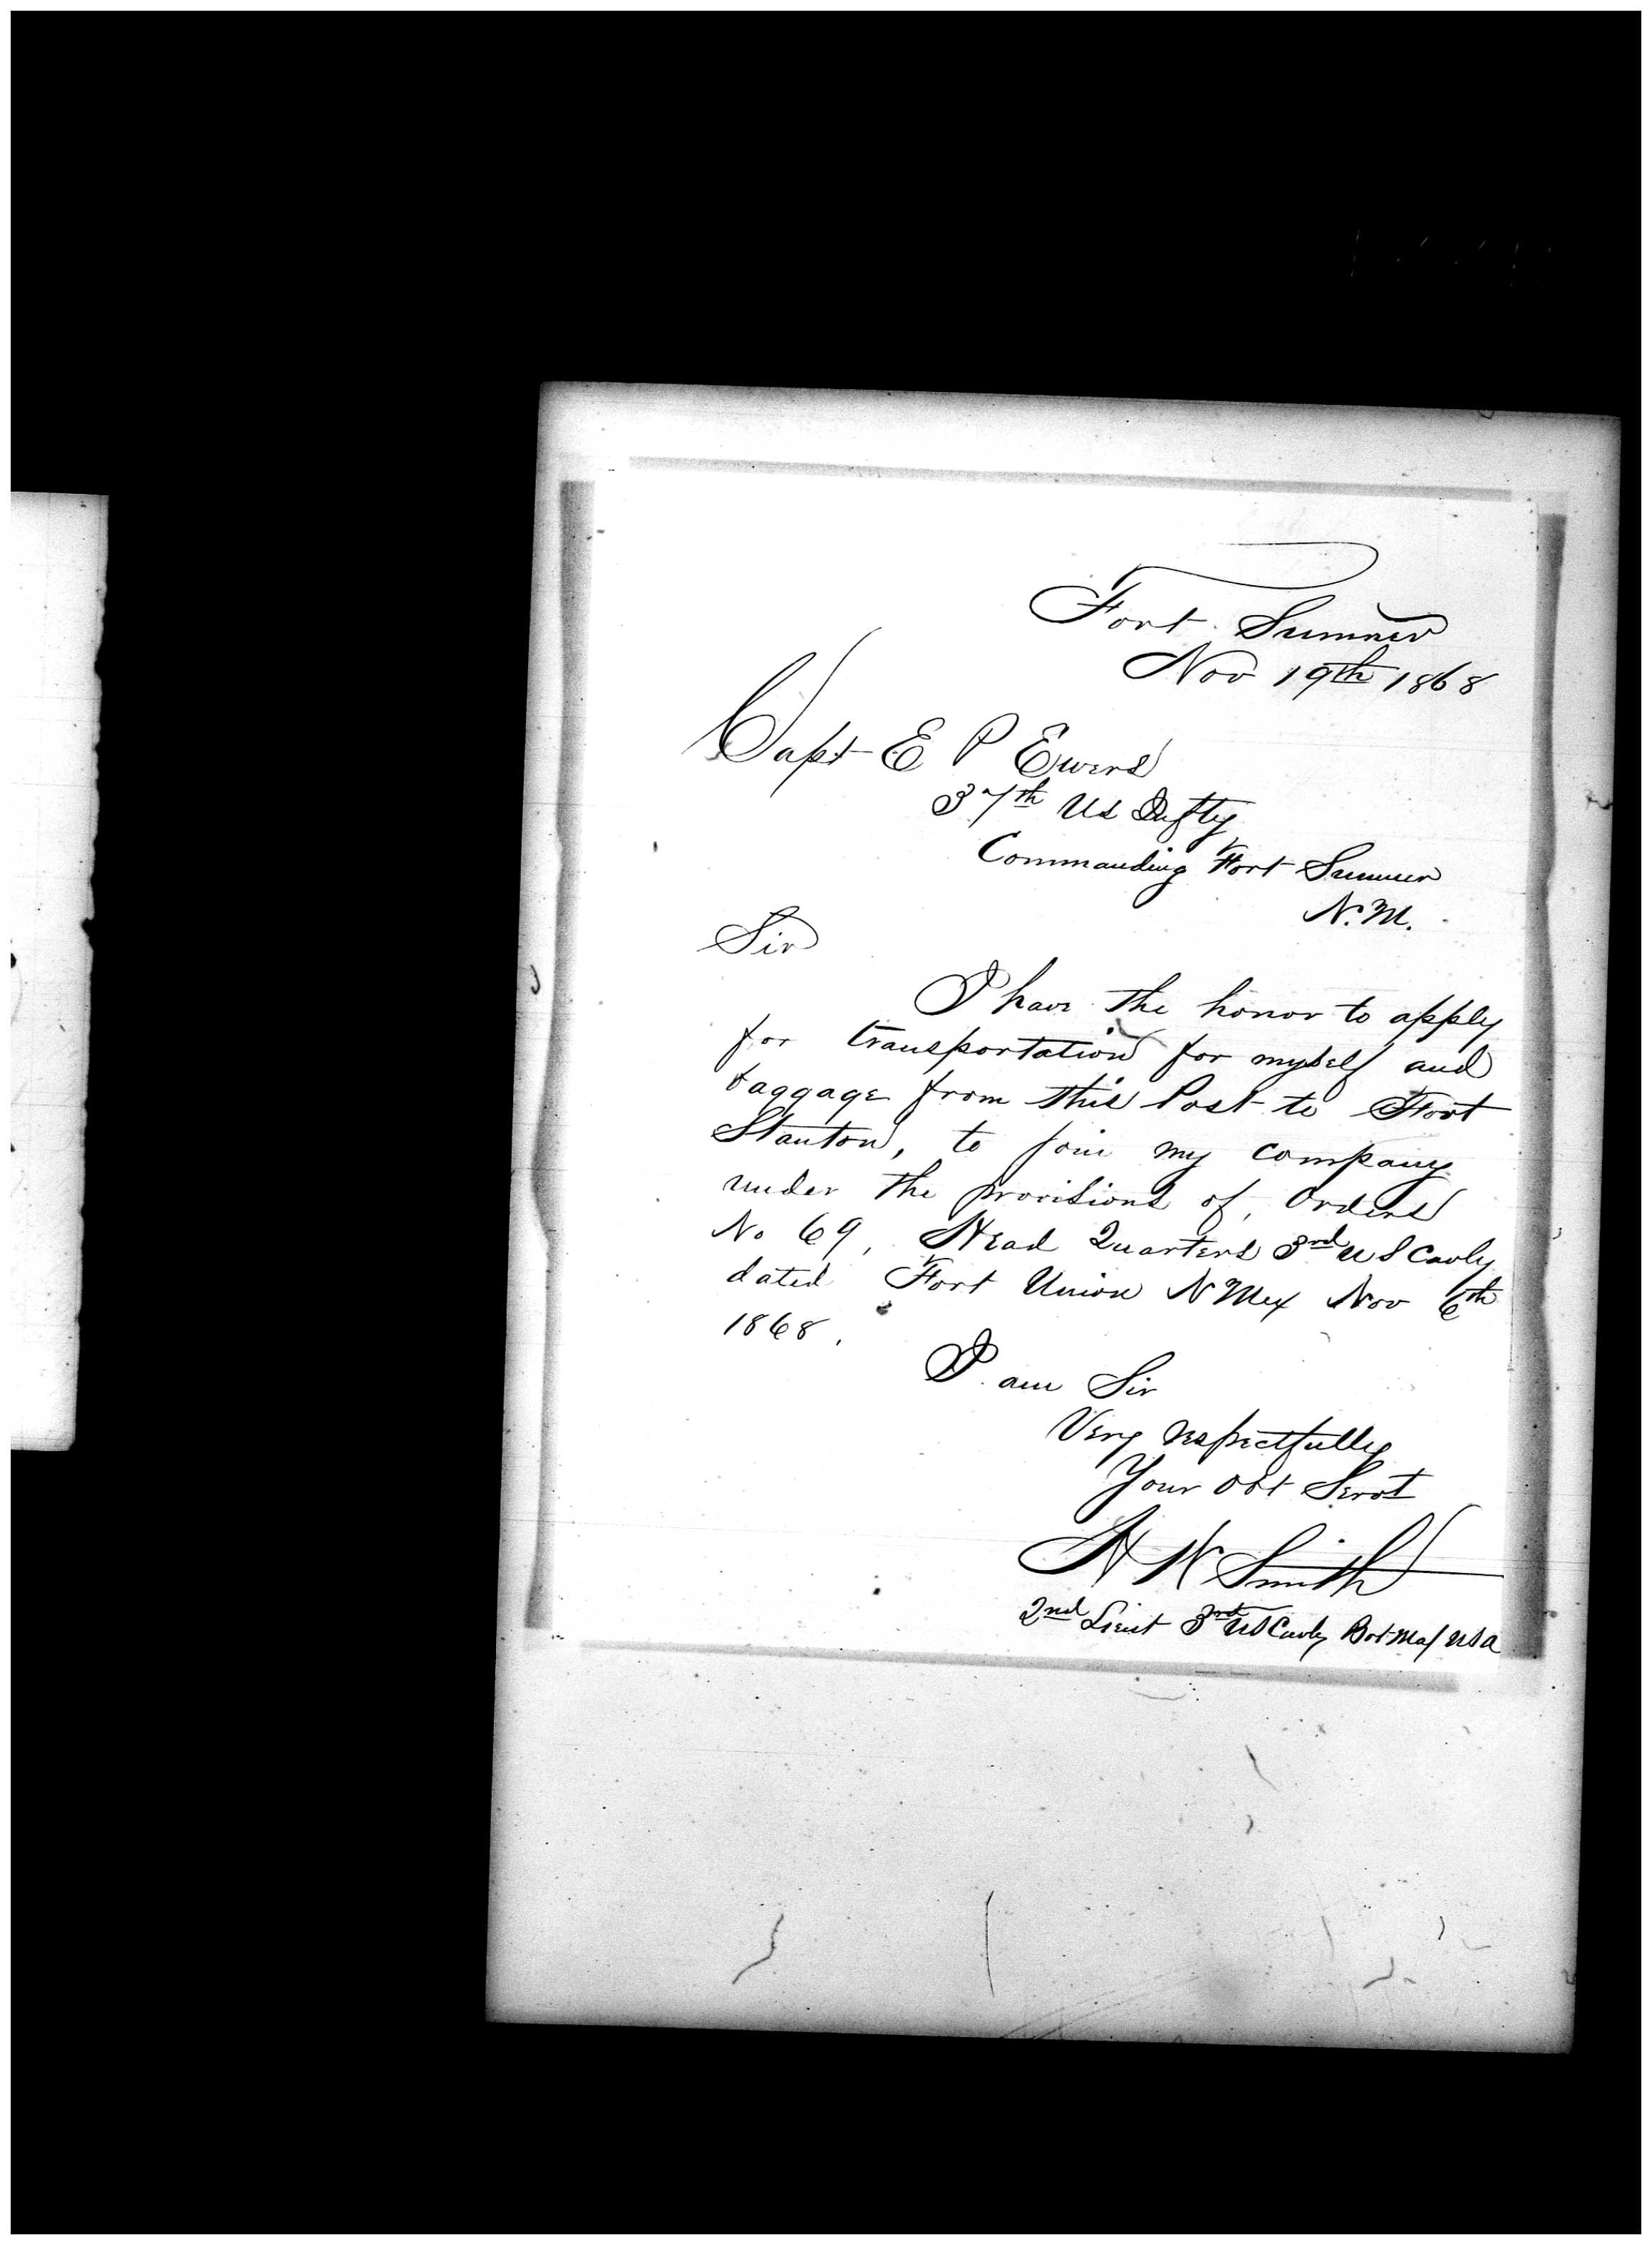 Fort Sumner
Nov 19th 1868
Capt E P Ewers
37th US Infty
Commanding Fort Sumner
N.M.
Sir
I have the honor to apply
for transportation for myself and
baggage from this Post to Fort
Stanton, to join my company
under the provisions of, Orders
No 69, Head Quarters 3rd U S Cavly
dated Fort Union N Mex Nov 6th
1868.
I am Sir
Very respectfully
Your Obt Servt
H W Smith
2nd Lieut 3rd US Cavly Bvt Maj USA